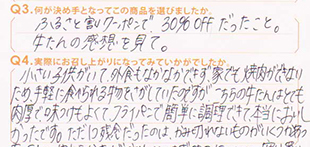 Q3.何が決め手となってこの商品を選びましたか。
ふるさと割クーポンで、30%Offだったこと。
牛たんの感想を見て。
Q4.実際にお召し上がりになってみていかがでしたか。
小さい子供がいて、外食もなかなかできず家でも焼肉ができない
ため、手軽に食べられる物をさがしていたのですが、こちらの牛たんはとても
肉厚で味つけもよくて、フライパンで簡単に調理できて本当においし
かったです。ただ1つ残念だったのは、かみ切れないものがいくつかあっ